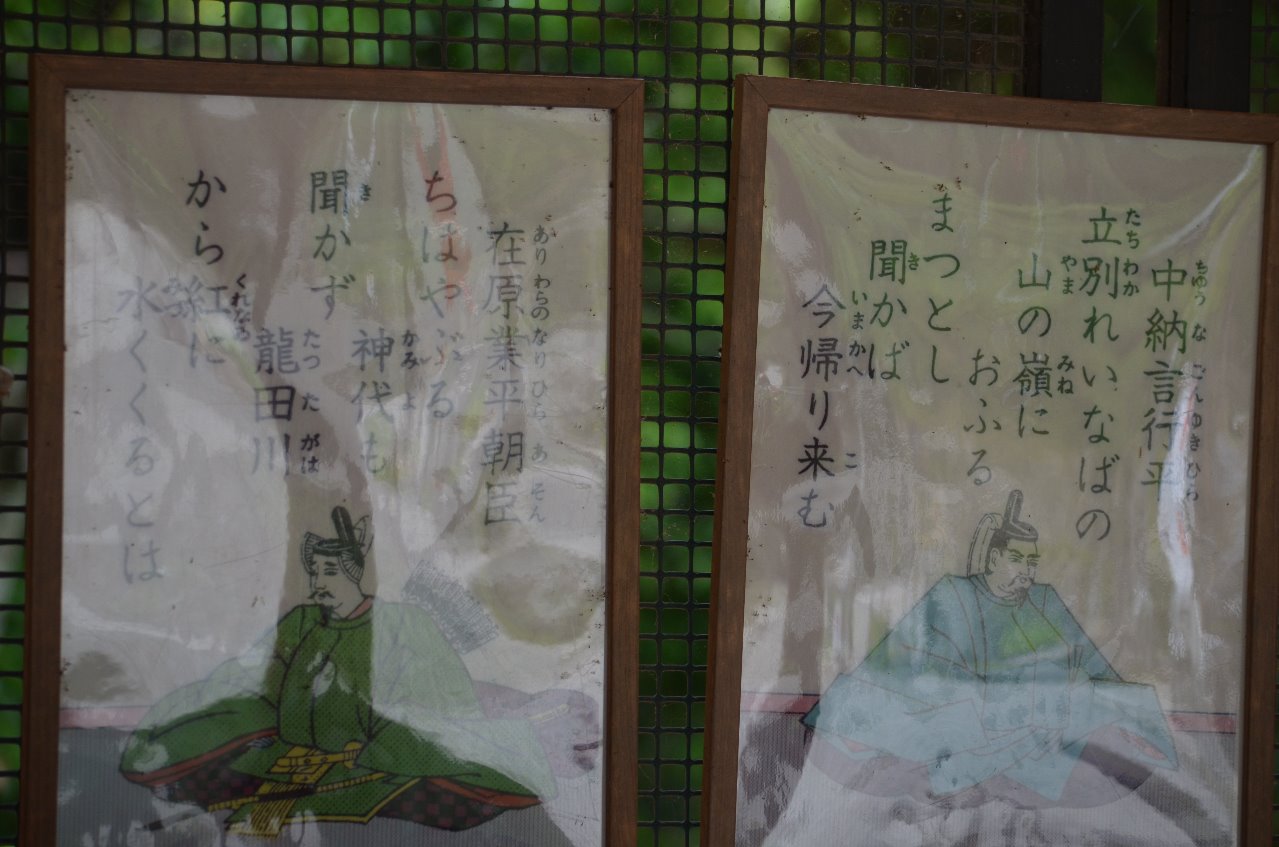 中納言行平
立別れいなばの
山の嶺に
おふる
まつとし
聞かば
今帰り来む
在原業平朝臣
ちはやぶる
神代も
聞かず
龍田川
から紅に
水くくるとは